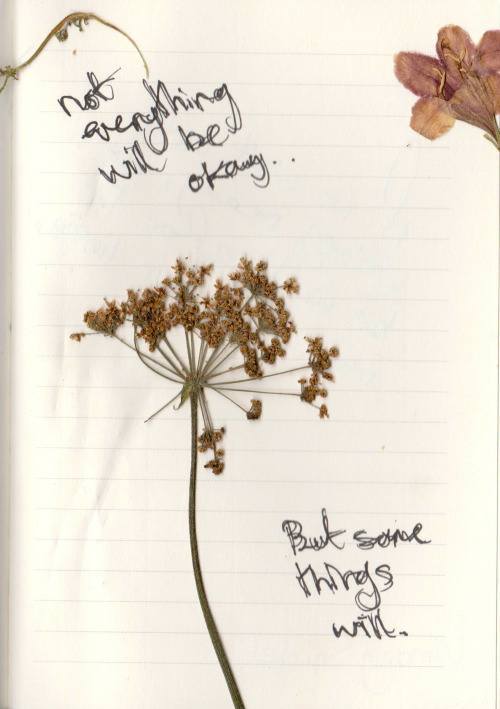 not
everything
will be
okay..
But some
things
will.